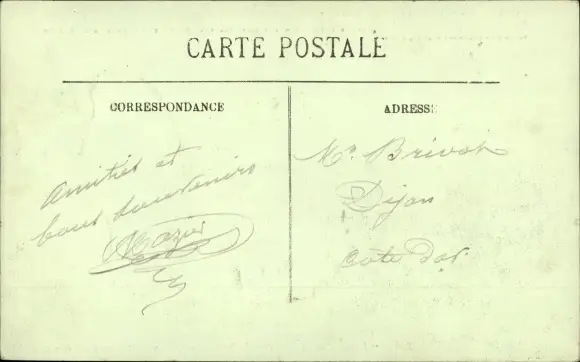 CARTE POSTALE
CORRESPONDANCE
ADRESSE
Amitiés et
bons souvenirs
Mr. Brivot
Dijon
Côte d'or